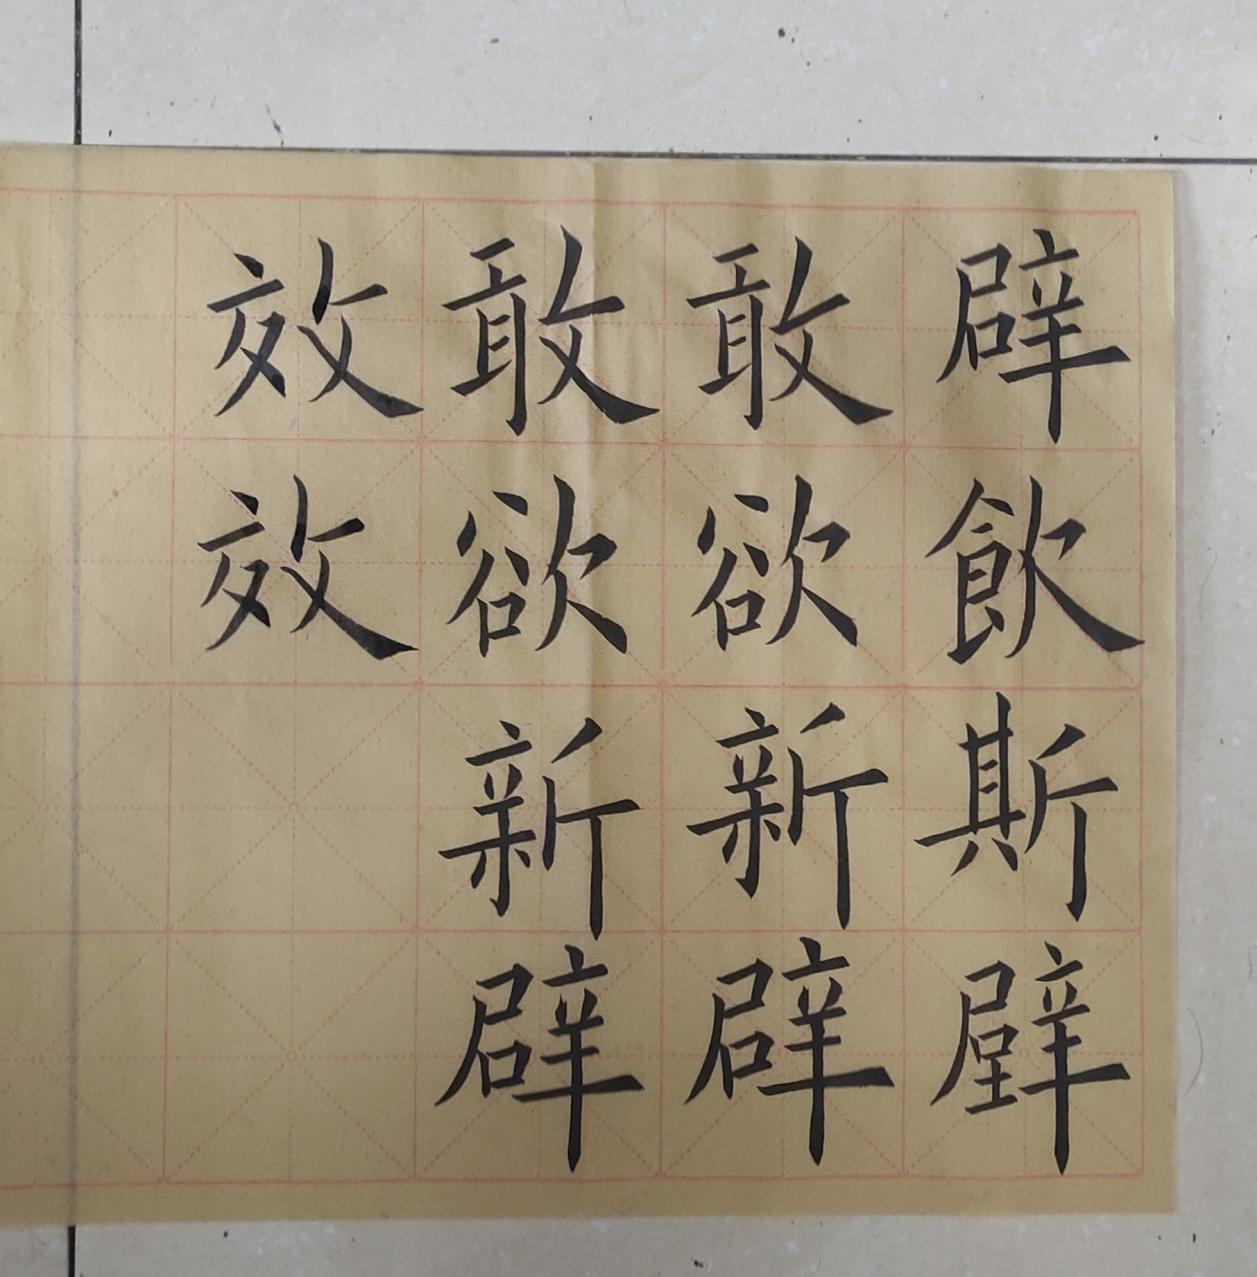 辟飲斯壁
敢欲新辟
敢欲新辟
效效